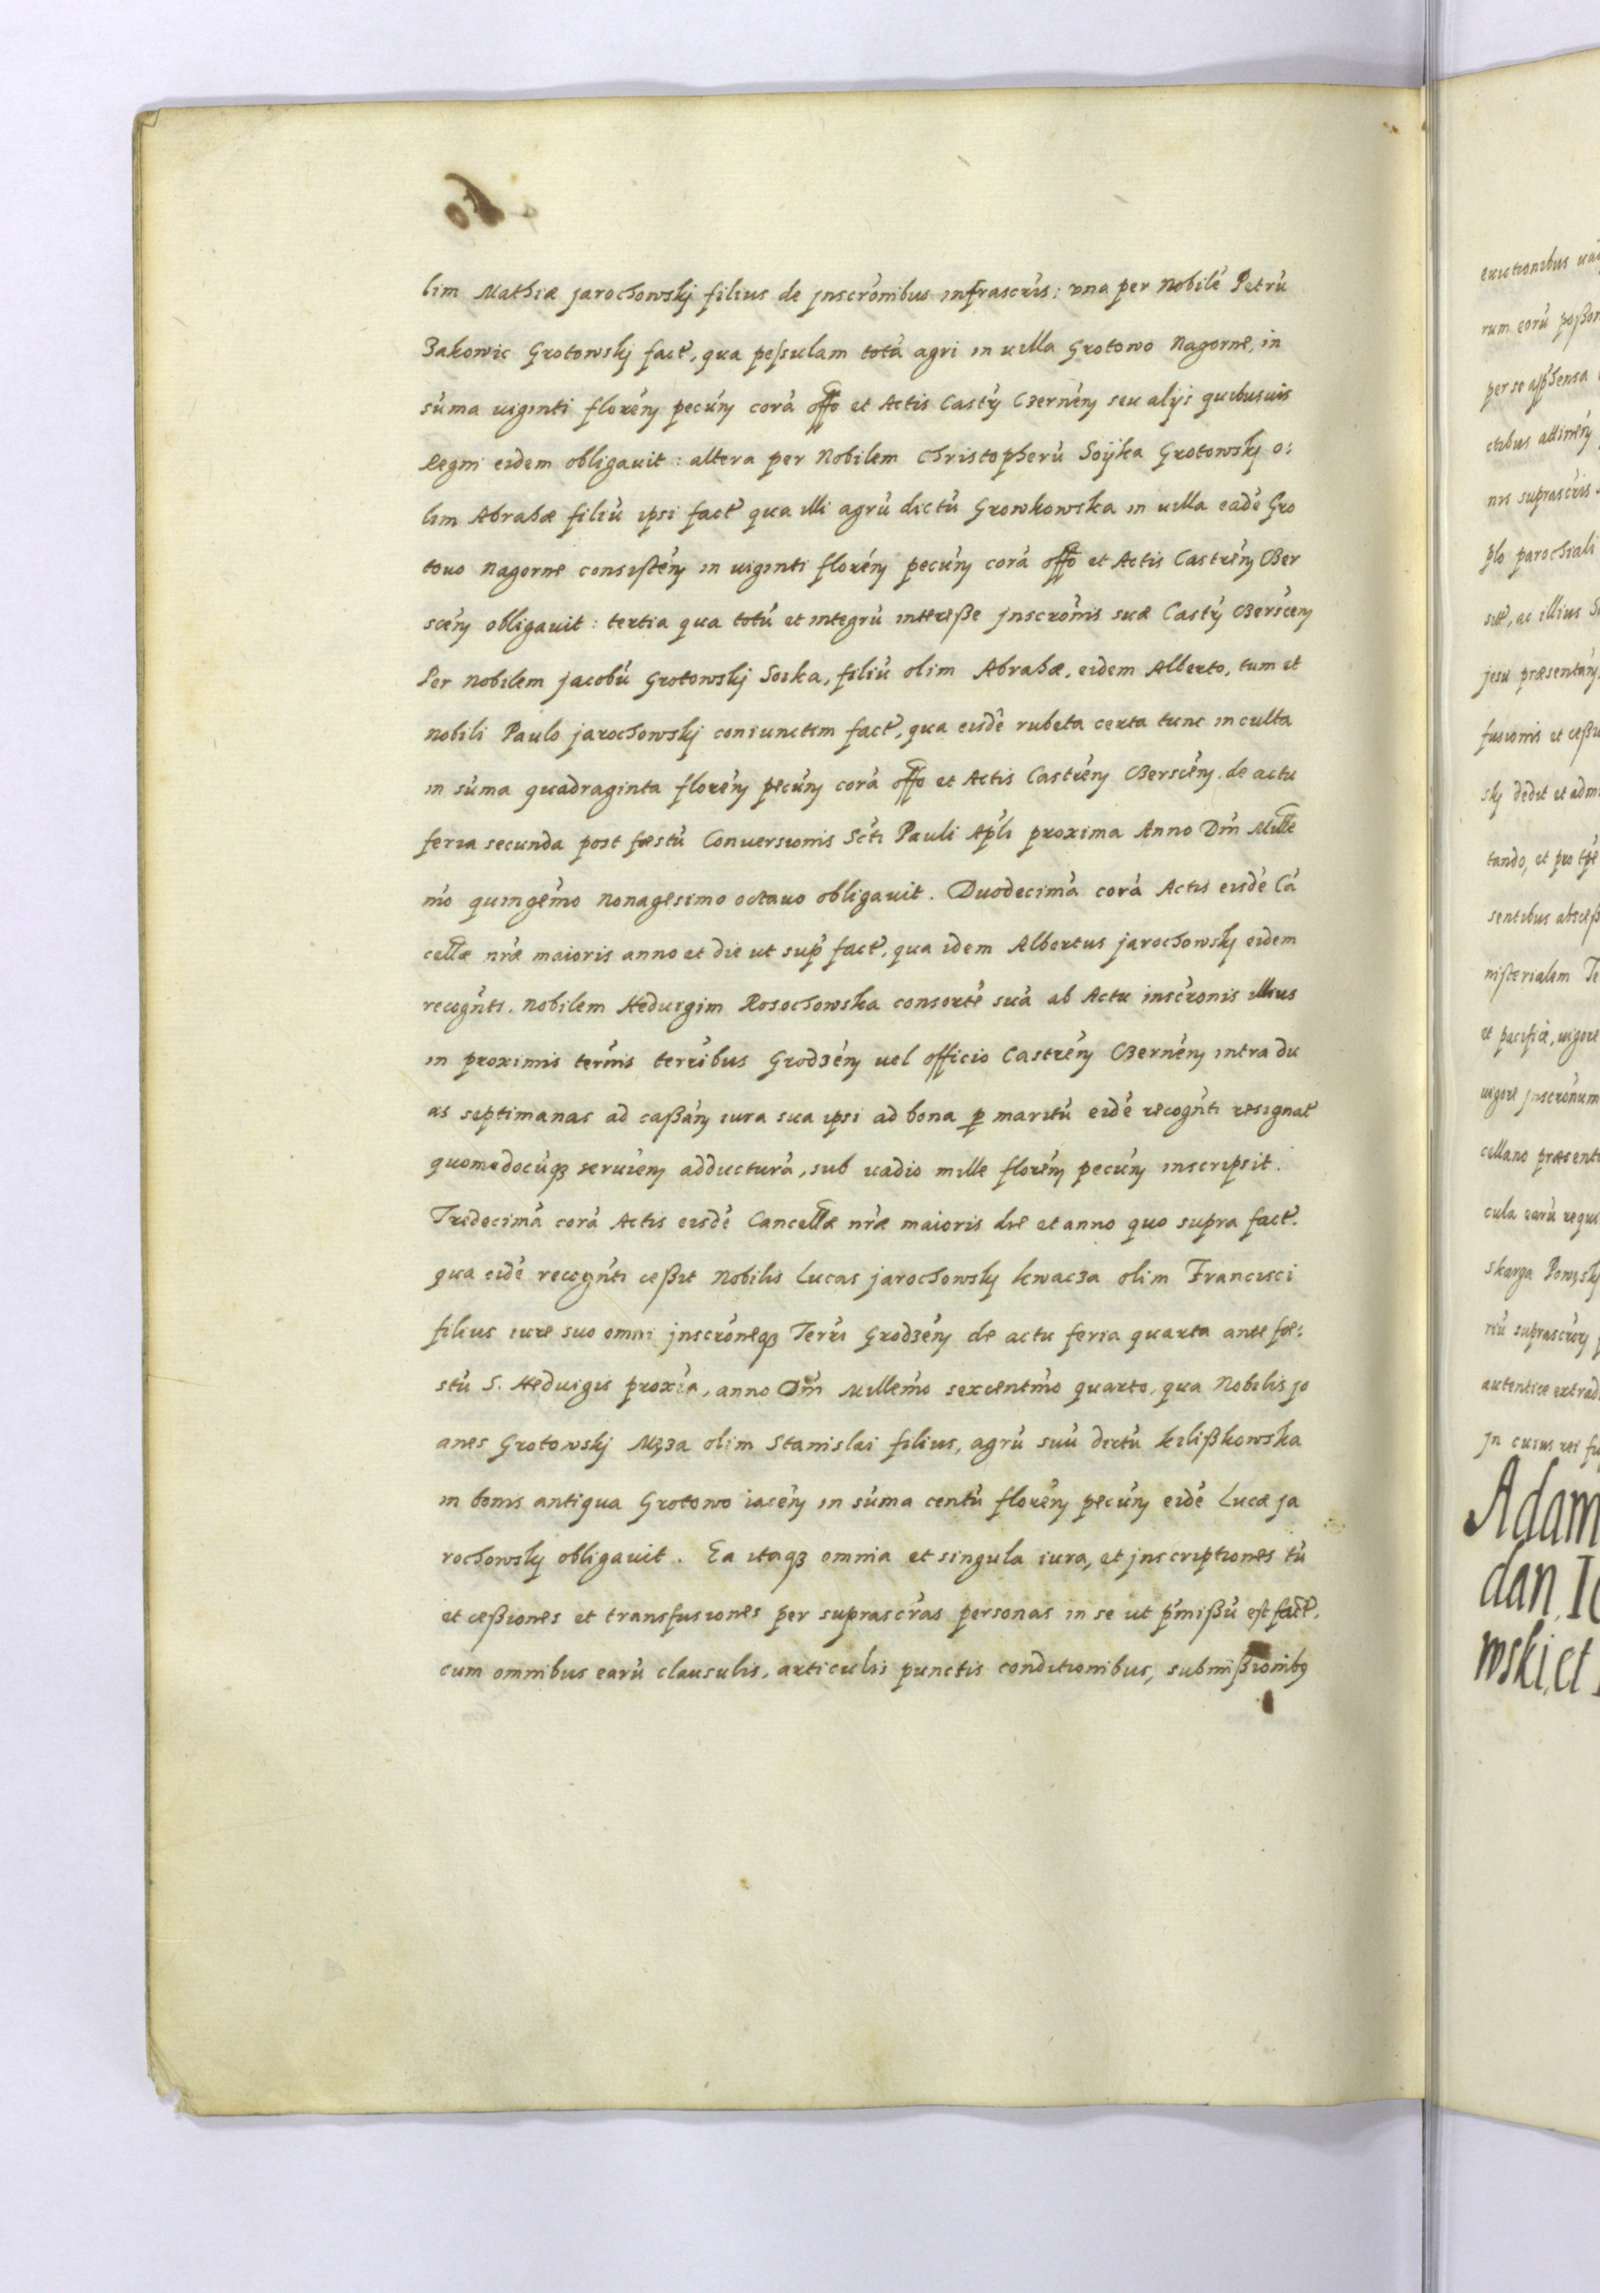 lim Mathiæ jarochowskj filius de jnscrónibus infrascrís; vna per Nobilé Petrú
Zakowic Grotowskj fact, qua peſsulam totá agri in uilla Grotowo Nagorne, in
súma uiginti florény pecúny corá offo et Actis Castr̃ Czernény seu alÿs quibusuis
Regni eidem obligauit: altera per Nobilem Christopherú Soÿka Grotowskj o:
lim Abrahæ filiú ipsi fact qua illi agrú dictú Growkowska in uilla eadé Gro
towo Nagorne consistény in uiginti florény pecúny corá offo et Actis Castrény Czer
scény obligauit: tertia qua totú et integrú intereße jnscrónis suæ Castr̃ Czerscény
Per Nobilem jacobú Grotowskj Soika, filiú olim Abrahæ, eidem Alberto, tum et
nobili Paulo jarochowskj coniunctim fact, qua eisdé rubeta certa tunc inculta
in súma quadraginta florény pecúny corá offo et Actis Castrény Czerscény. de actu
feria secunda post fæstú Conuersionis Scti Pauli Apli proxima Anno Dm̃ Mille
mó quingémo Nonagesimo octauo obligauit. Duodecimá corá Actis eiusdé Cá
cellæ nræ maioris anno et die ut sup fact, qua idem Albertus jarochowskj eidem
recognti. Nobilem Heduigim Rosochowska consorté suá ab Actu inscrónis illius
in proximis termis terribus Grodzény uel officio Castrény Czernény intra du
as septimanas ad caßány iura sua ipsi ad bona p maritú eidé recognti resignat
quomodocúqȝ seruieny adducturá, sub uadio mille florény pecúny inscripsit.
Tredecimá corá Actis eiusdé Cancellæ nræ maioris die et anno quo supra fact.
qua eidé recognti ceßit Nobilis Lucas jarochowskj kwacza olim Francisci
filius iure suo omni jnscróneqȝ Terrí Grodzény de actu feria quarta ante fæ:
stú S. Heduigis proxía, anno Dm̃ Millemo sexcentmo quarto, qua Nobilis jo
anes Grotowskj olim Stanislai filius, agrú suú dictú kilißkowska
in bonis antiqua Grotowo iacény in súma centú florény pecúny eidé Lucæ ja
rochowskj obligauit. Ea itaqȝ omnia et singula iura, et jnscriptiones tú
et ceßiones et transfusiones per suprascr̃as personas in se ut pmißú est fact,
cum omnibus earú clausulis, articulis punctis conditionibus, submißionibȝ
euictionibus
rum eorú
per se
ctibus
nis suprascris
plo parochiali
sitt, ac illius
jesu præsentány
fusionis et ceßi
skj dedit et adm
tando, et pro tpe
sentibus
nisterialem Te
et pacifice, uigore
uigore jnscrónum
cellano præsenti
cula earú requi
skarga Powęskj
riú suprascr
autentice extrad
Jn cuius rei
Adam
dan, I
wski, et